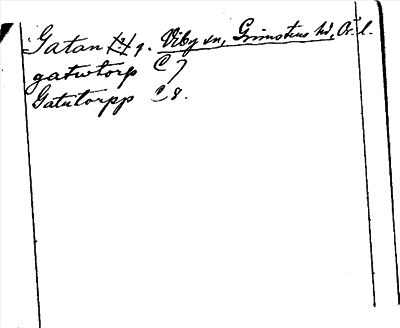 Gatan g. Viby sn, Grimstens hd, Ör. l.
gatutorp C 7
Gatutorpp C 8.